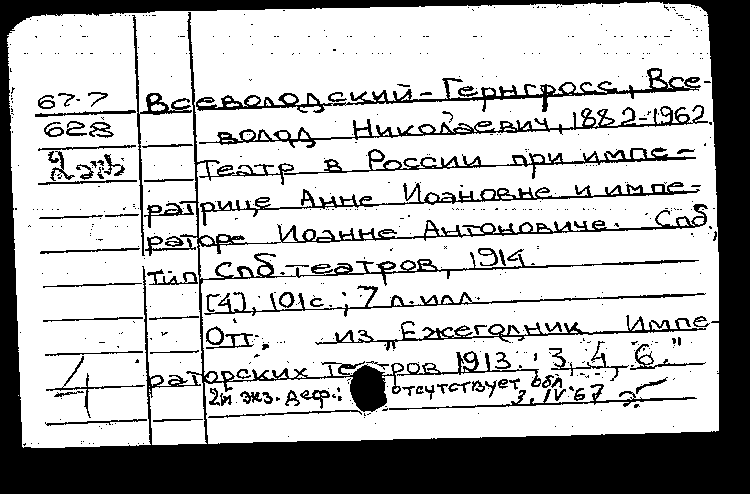 67-7 Всеволодский-Гернгросс, Все-
628 волод Николаевич, 1882-1962
2 экз Театр в России при импе-
ратрице Анне Иоановне и импе-
раторе Иоанне Антоновиче. Спб.,
тип. Спб. театров, 1914.
[4], 101 с.; 7 л. илл.
Отт. из „Ежегодник Импе-
раторских театров 1913.; 3, 4, 6."
4 2й экз. деф.: отсутствует обл
3.IV.67